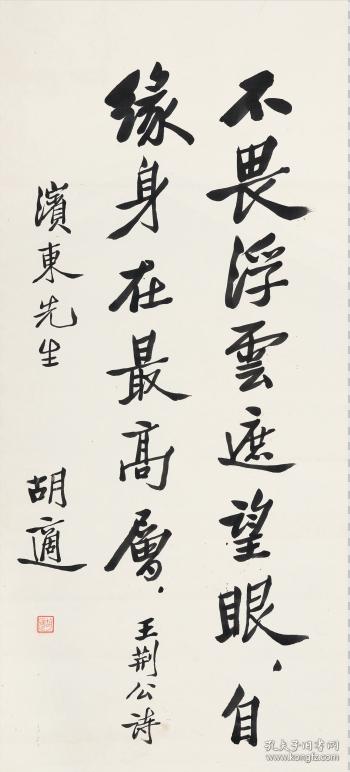 不畏浮雲遮望眼，自
緣身在最高層。王荆公詩
濱東先生
胡適
孔夫子旧书网
www.kongfz.com